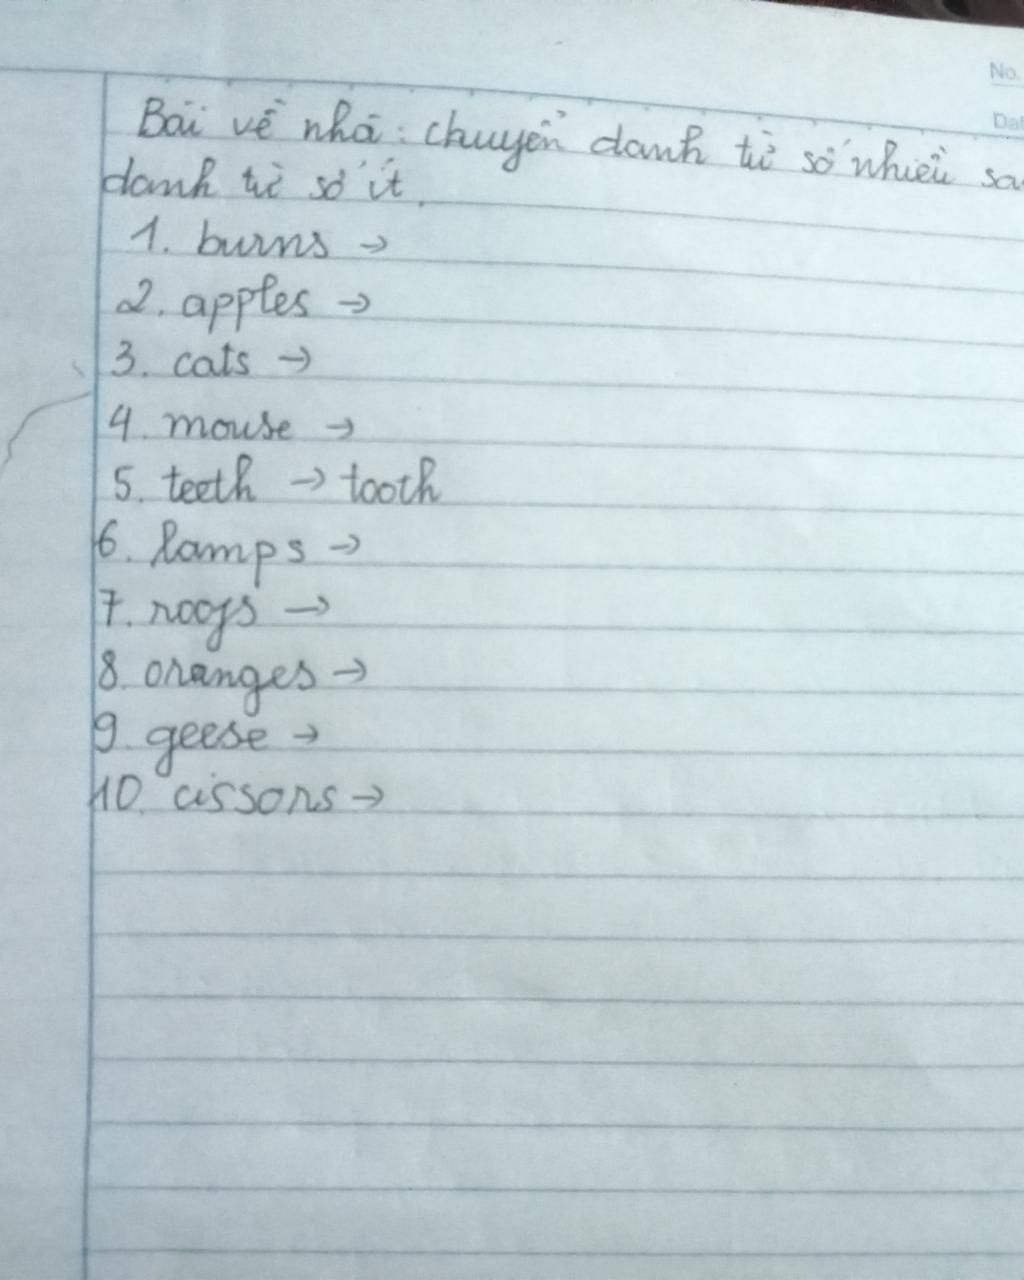 No.
Bài về nhà: chuyển danh từ số nhiều
danh từ số ít.
1. burns →
2. apples →
3. cats →
4. mouse →
5. teeth → tooth
6. lamps →
7. roofs →
8. oranges →
9. geese →
10. cissors →